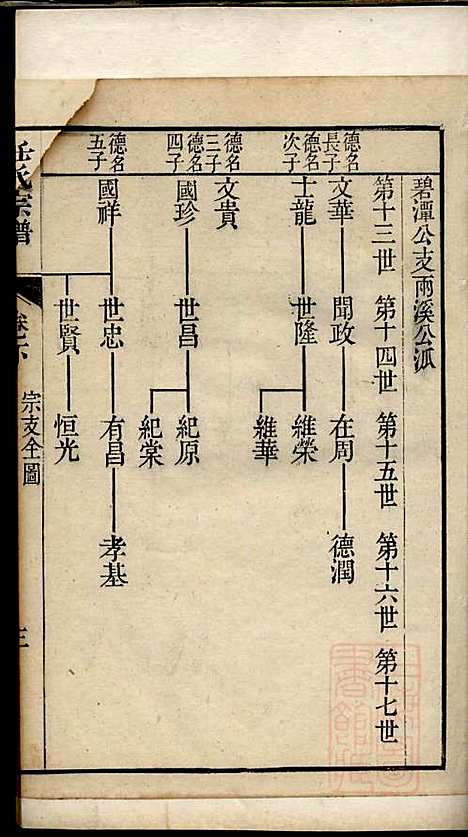 碧潭公支雨溪公派
第十三世 第十四世 第十五世 第十六世 第十七世
德名長子 文華 聞政 在周 德潤
德名次子 士龍 世隆 維榮
維華
德名三子 文貴
德名四子 國珍 世昌 紀原
紀棠
德名五子 國祥 世忠 有昌 孝基
世賢 恒光
氏宗譜
宗支全圖
三